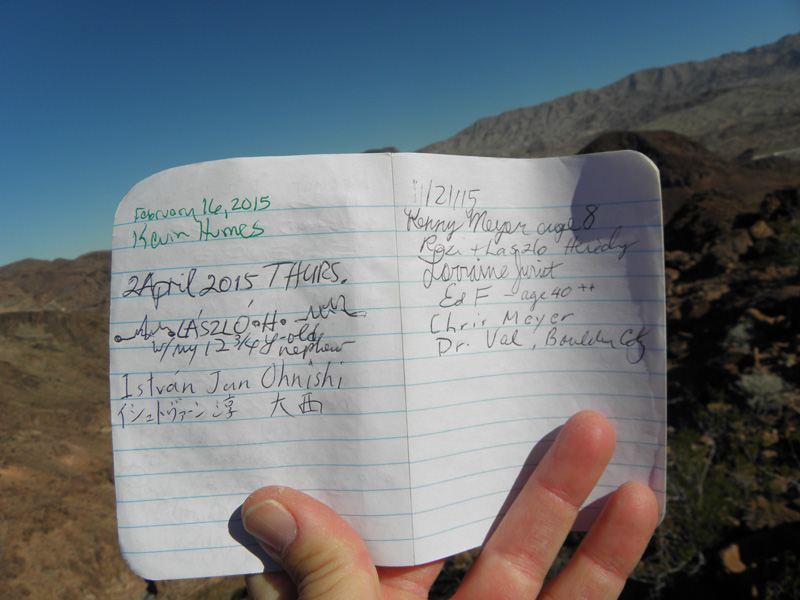 February 16, 2015
Kevin Humes
2 April 2015 THURS.
LÁSZLÓ H.
w/my 12 3/4 yr-old
nephew
István Jun Ohnishi
イシュトヴァーン 淳 大西
11/21/15
Kenny Meyer age 8
+ Laszlo
Lorraine
Ed F - age 40 ++
Chris Meyer
Dr. Val, Boulder City